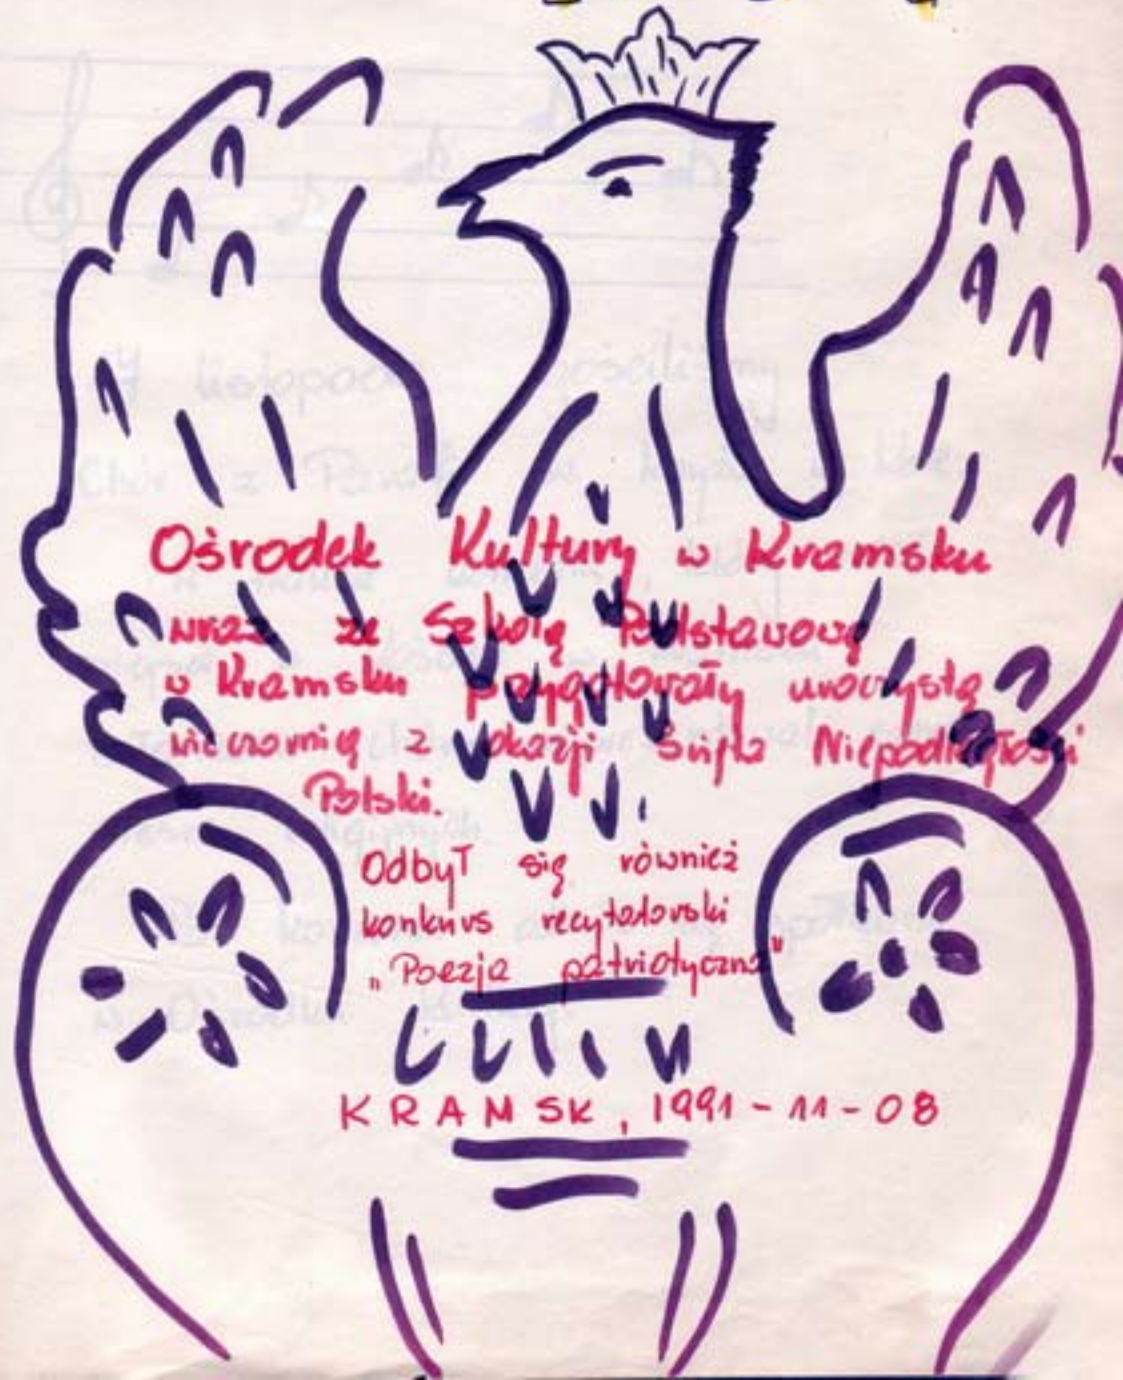 Ośrodek Kultury w Kramsku
wraz ze Szkołą Podstawową
w Kramsku przygotowały uroczystą
wieczornicę z okazji Święta Niepodległości
Polski.
Odbył się również
konkurs recytatorski
„Poezja patriotyczna"
KRAMSK, 1991-11-08